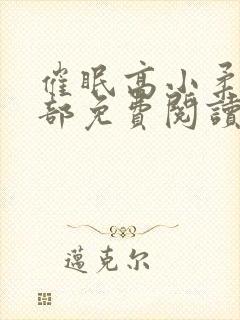 催眠高小柔
部免費閱讀
邁克尔